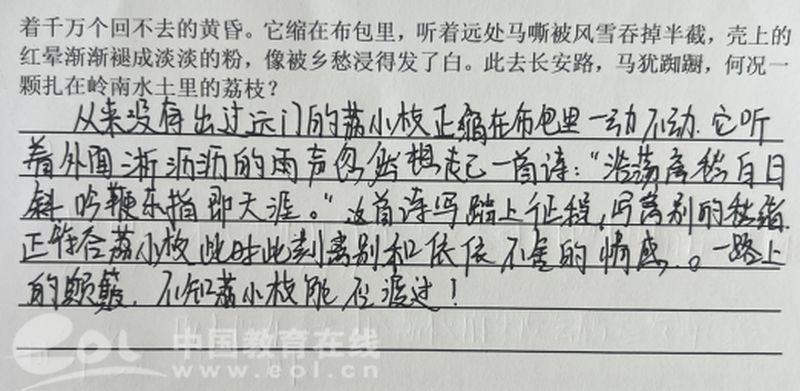 着千万个回不去的黄昏。它缩在布包里，听着远处马嘶被风雪吞掉半截，壳上的
红晕渐渐褪成淡淡的粉，像被乡愁浸得发了白。此去长安路，马犹踟蹰，何况一
颗扎在岭南水土里的荔枝？
从来没有出过远门的荔小枝正缩在布包里一动不动.它听
着外面淅沥沥的雨声忽然想起一首诗："浩荡离愁白日
斜吟鞭东指即天涯。"这首诗写踏上征程，写离别的愁绪.
正符合荔小枝此时此刻离别和依依不舍的情感.。一路上
的颠簸.不知荔小枝能否渡过！
eol 中国教育在线
www.eol.cn